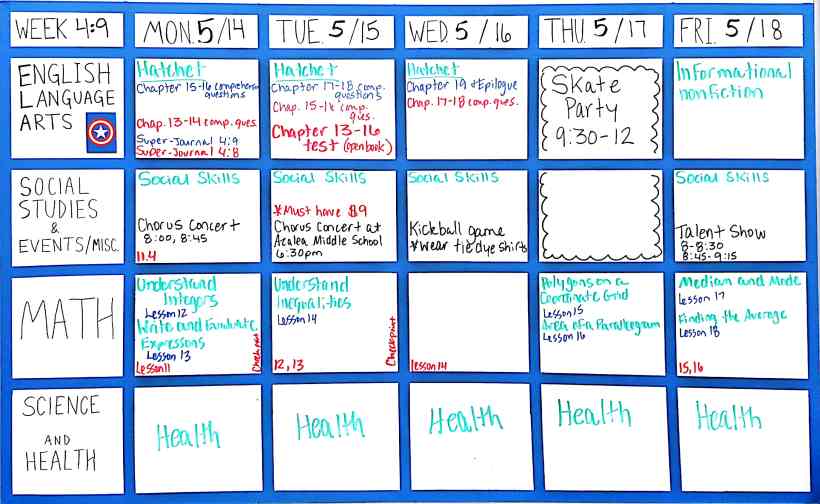 WEEK 4:9
MON. 5/14
TUE. 5/15
WED. 5/16
THU. 5/17
FRI. 5/18
ENGLISH
LANGUAGE
ARTS
Hatchet
Chapter 15-16 comprehension
questions
Chap. 13-14 comp. ques.
Super-Journal 4:9
Super-Journal 4:8
Hatchet
Chapter 17-18 comp.
questions
Chap. 15-16 comp.
ques.
Chapter 13-16
test (open book)
Hatchet
Chapter 19 + Epilogue
Chap. 17-18 comp. ques.
Skate
Party
9:30-12
Informational
nonfiction
SOCIAL
STUDIES
&
EVENTS/MISC.
Social Skills
Chorus Concert
8:00, 8:45
11.4
Social Skills
*Must have $9
Chorus Concert at
Azalea Middle School
6:30pm
Social Skills
Kickball game
*wear tie dye shirts
Social Skills
Talent Show
8-8:30
8:45-9:15
MATH
Understand
Integers
Lesson 12
Write and Evaluate
Expressions
Lesson 13
Lesson 11
Checkpoint
Understand
Inequalities
Lesson 14
12, 13
Checkpoint
lesson 14
Polygons on a
Coordinate Grid
Lesson 15
Area of a Parallelogram
Lesson 16
Median and Mode
Lesson 17
Finding the Average
Lesson 18
15, 16
SCIENCE
AND
HEALTH
Health
Health
Health
Health
Health